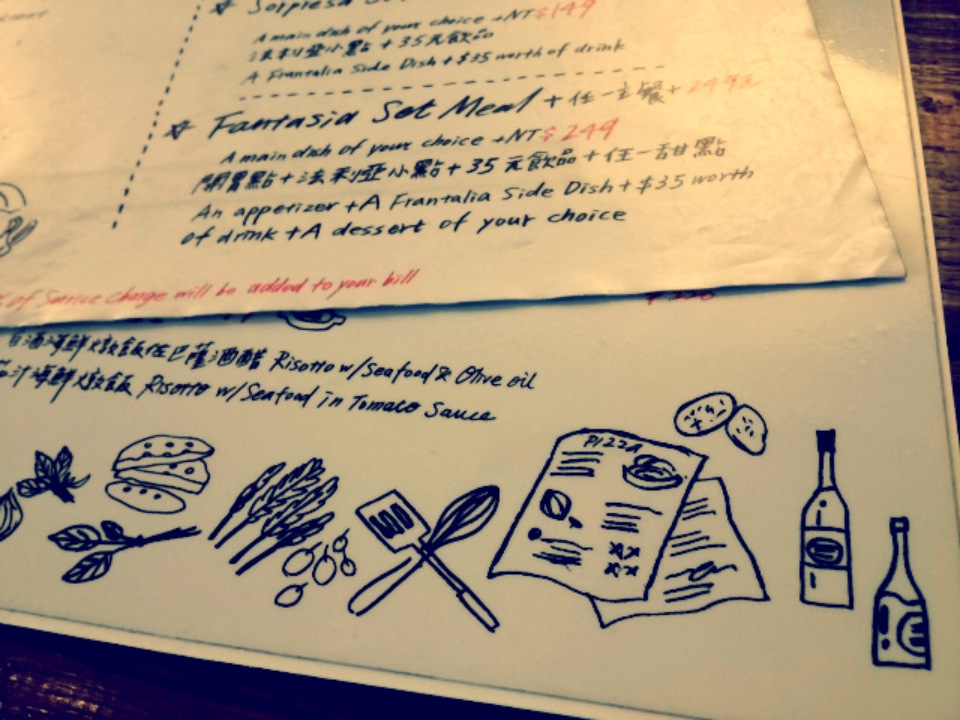 A main dish of your choice +NT$149
法利亞小點 + 35元飲品
A Frantalia Side Dish + $35 worth of drink
Fantasia Set Meal + 任一主餐 + 249元
A main dish of your choice +NT$249
開胃點 + 法利亞小點 + 35元飲品 + 任一甜點
An appetizer + A Frantalia Side Dish + $35 worth
of drink + A dessert of your choice
% of Service charge will be added to your bill
白酒海鮮燉飯佐巴薩酒醋 Risotto w/Seafood & Olive oil
茄汁海鮮燉飯 Risotto w/Seafood in Tomaco Sauce
PIZZA